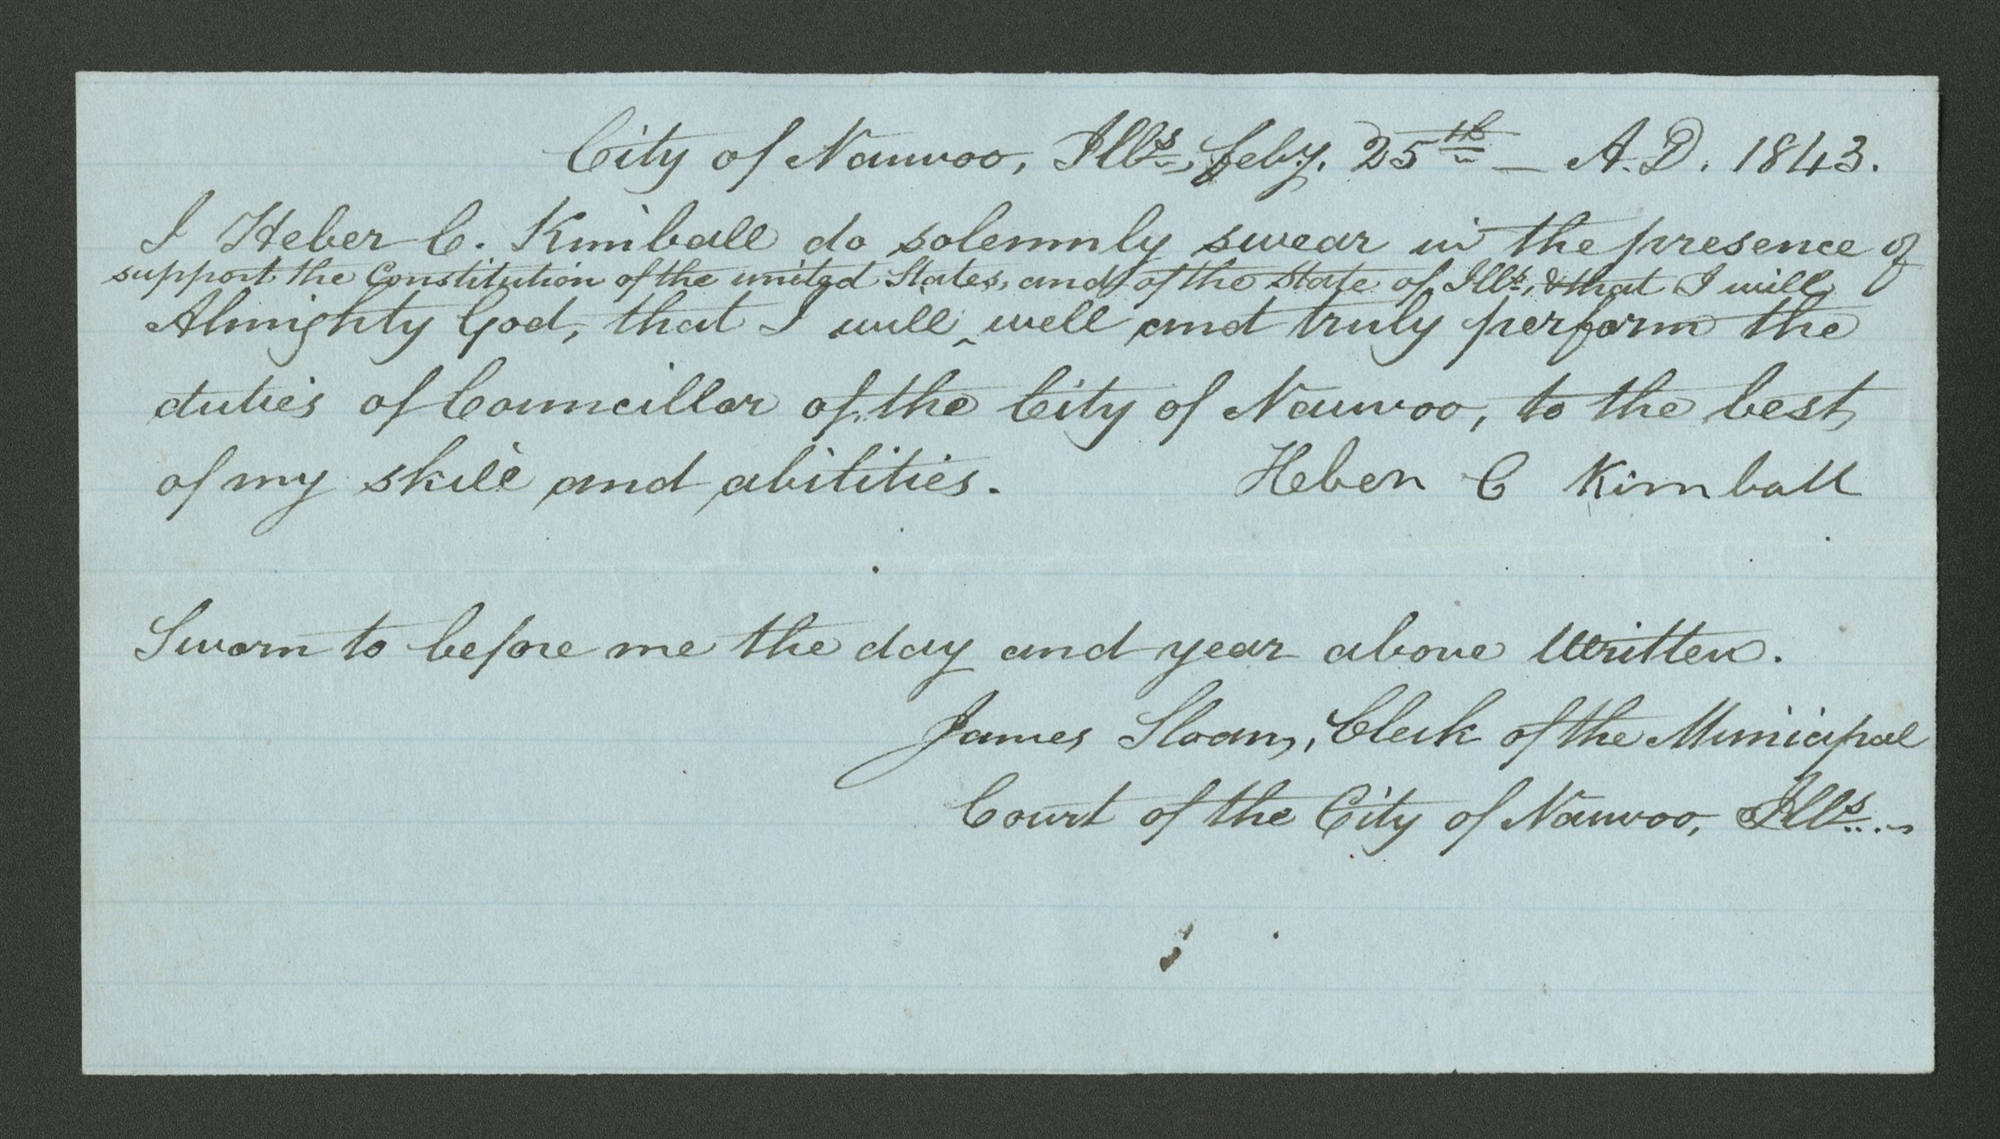 City of Nauvoo, Ills, feby. 25th — A.D. 1843.
I Heber C. Kimball do solemnly swear in the presence of
support the Constitution of the united States, and of the State of Ills, & that I will
Almighty God, that I will ‸ well and truly perform the
duties of Councillor of the City of Nauvoo, to the best
of my skill and abilities. Heber C Kimball
Sworn to before me the day and year above Written.
James Sloan, Clerk of the Municipal
Court of the City of Nauvoo, Ills.